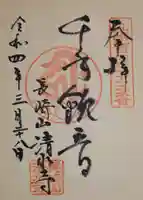 奉拝
千手観音
長崎山 清水寺
令和四年三月二十八日